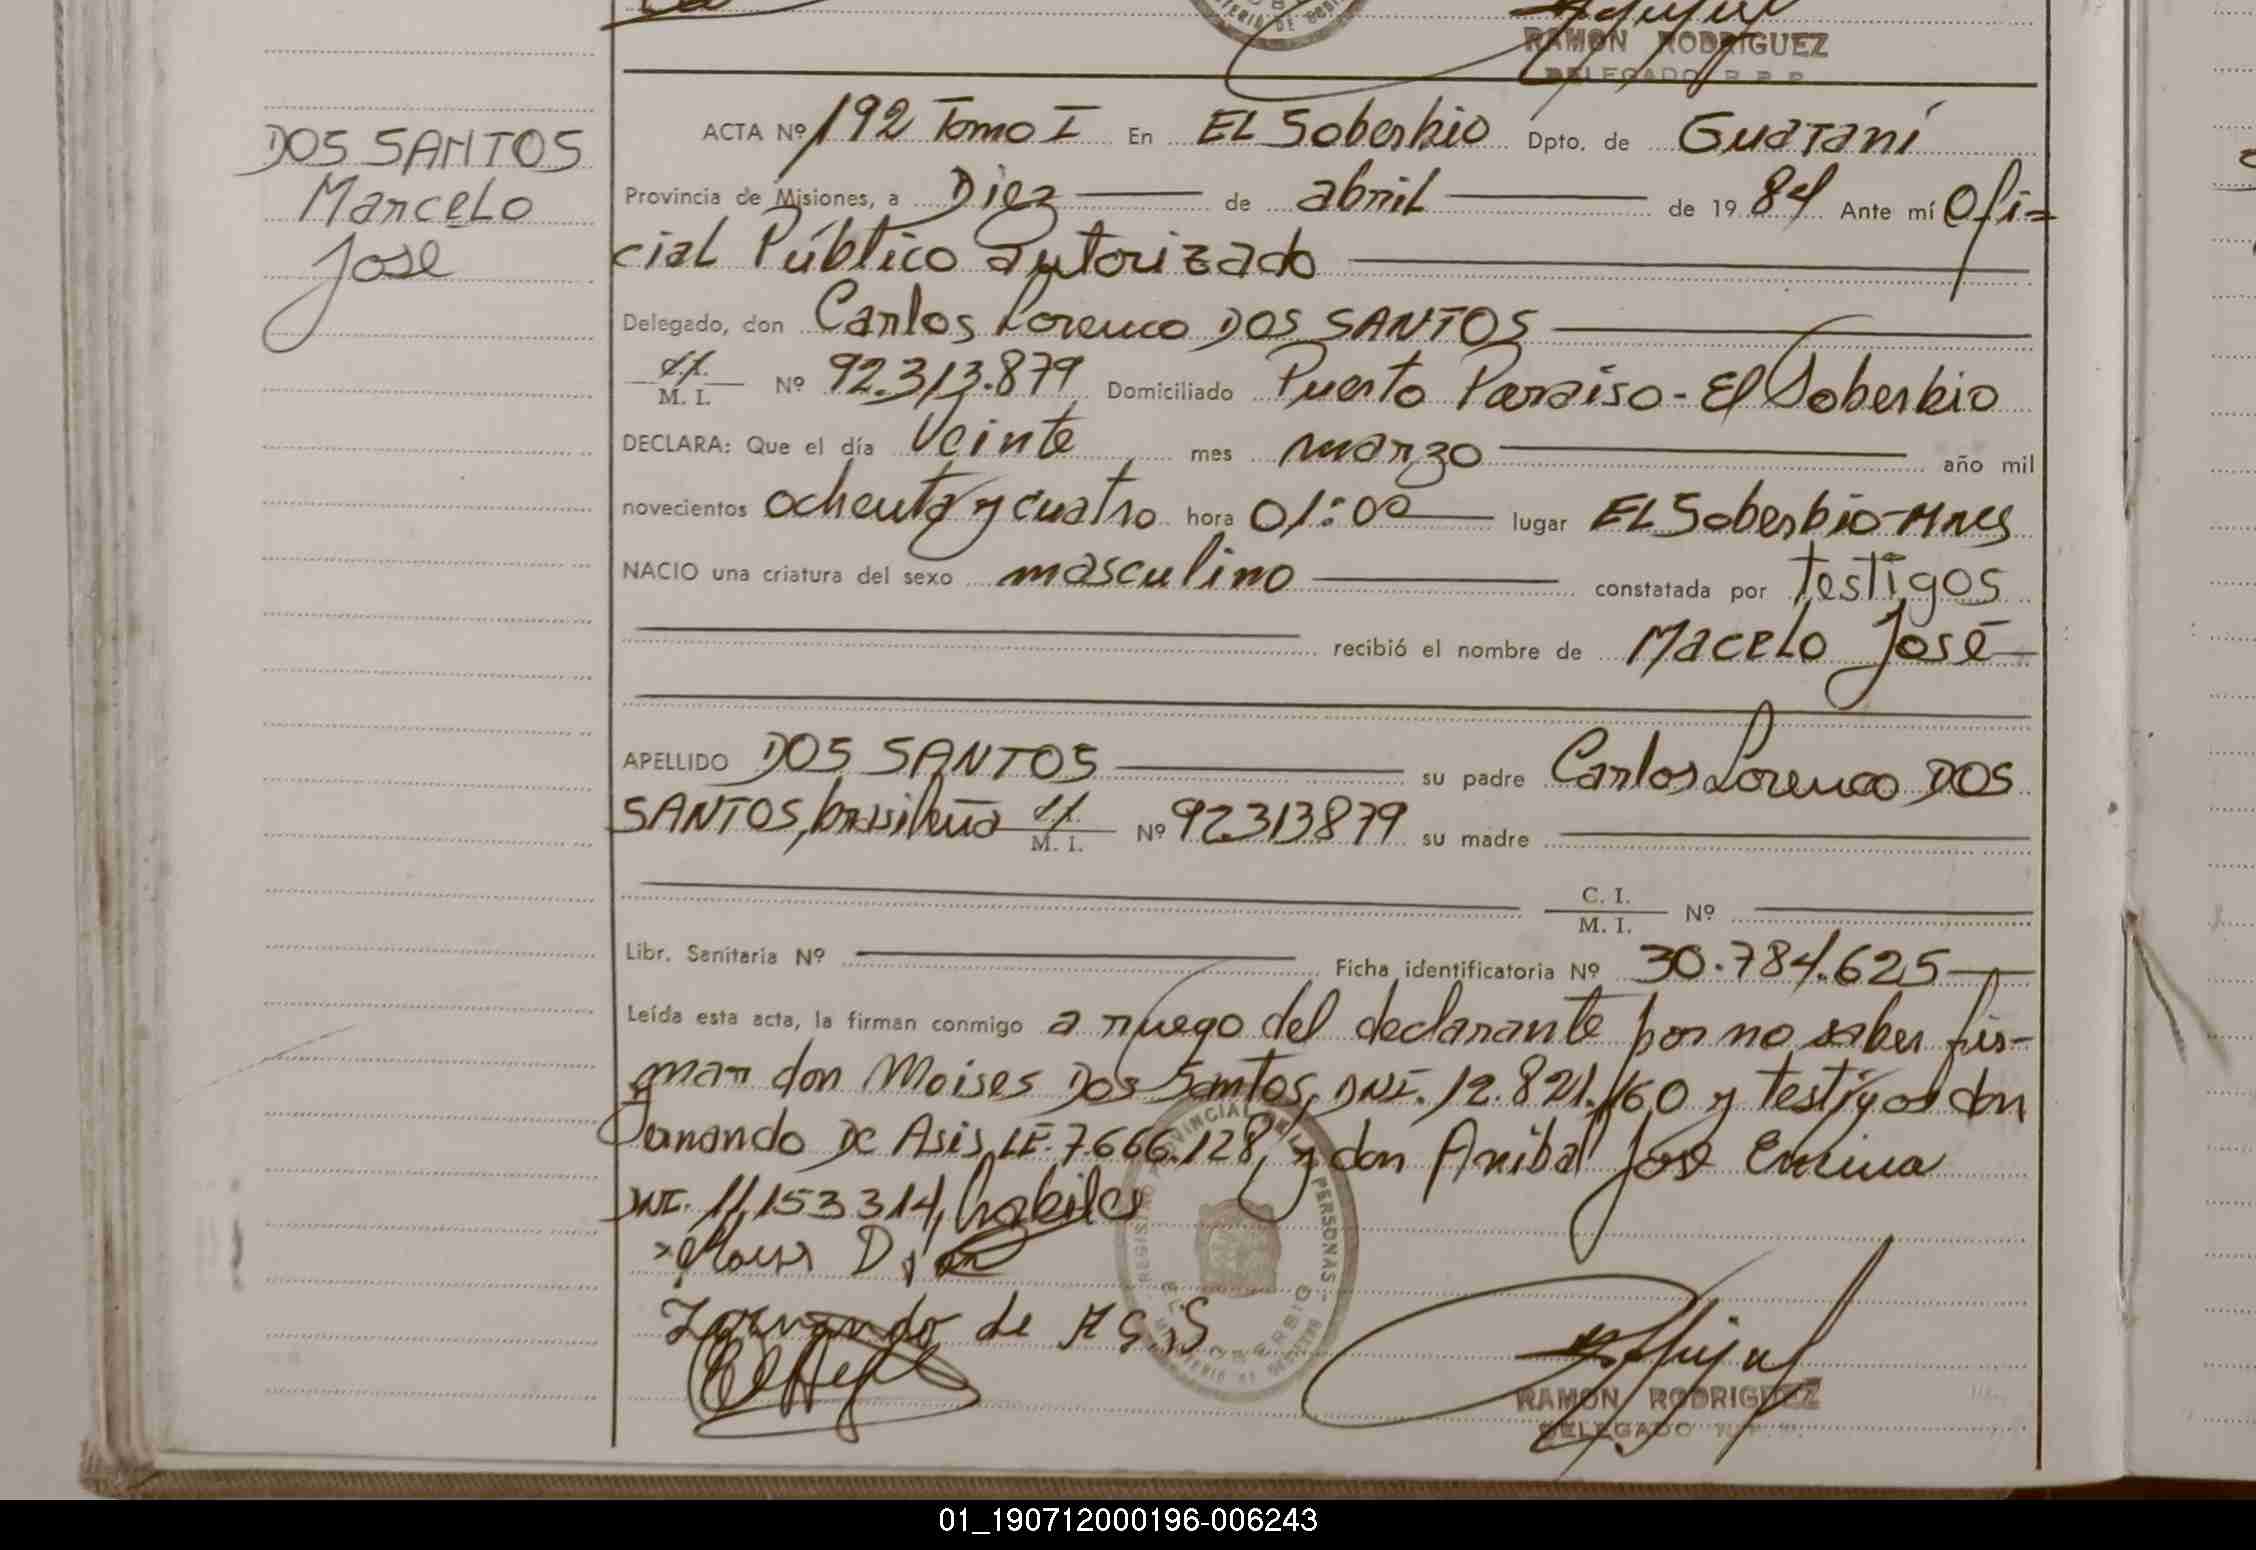 RAMON RODRIGUEZ
DELEGADO R. P. P.
DOS SANTOS
Marcelo
José
ACTA Nº 192 Tomo I En EL Soberbio Dpto. de Guaraní
Provincia de Misiones, a Diez de abril de 1984 Ante mí Ofi=
cial Público autorizado
Delegado, don Carlos Lorenco DOS SANTOS
M. I. Nº 92.313.879 Domiciliado Puerto Paraiso - El Soberbio
DECLARA: Que el día Veinte mes marzo año mil
novecientos ochenta y cuatro hora 01:00 lugar EL Soberbio-Mnes
NACIO una criatura del sexo masculino constatada por testigos
recibió el nombre de Macelo José
APELLIDO DOS SANTOS su padre Carlos Lorenco DOS
SANTOS, brasileña M. I. Nº 92313879 su madre
C. I.
M. I. Nº
Libr. Sanitaria Nº Ficha identificatoria Nº 30.784.625
Leída esta acta, la firman conmigo a ruego del declarante por no saber fir-
mar don Moises Dos Santos, DNI. 12.821.160 y testigos don
Fernando De Asis, LE. 7.666.128, y don Anibal José Encina
DNI. 11,153.314, habiles
Fernando de Asis
REGISTRO PROVINCIAL DE LAS PERSONAS
EL SOBERBIO
MINISTERIO DE GOBIERNO
RAMON RODRIGUEZ
DELEGADO R. P. P.
01_190712000196-006243